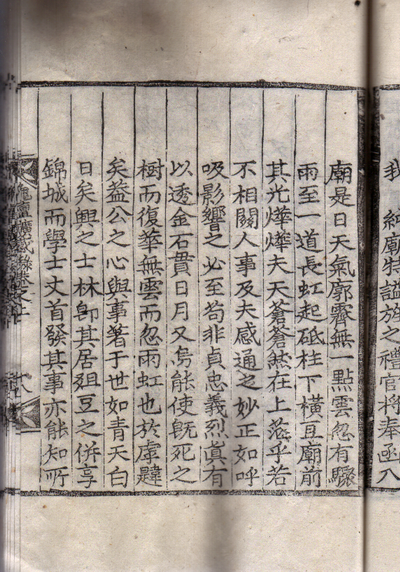 我 純廟特謚旌之禮官將奉函入
廟是日天氣廓霽無一點雲忽有驟
雨至一道長虹起砥柱下橫亘廟前
其光燁燁夫天蒼蒼然在上茫乎若
不相關人事及夫感通之妙正如呼
吸影響之必至苟非貞忠義烈眞有
以透金石貫日月又烏能使旣死之
樹而復華無雲而忽雨虹也於虖韙
矣蓋公之心與事著于世如青天白
日矣興之士林卽其居俎豆之併享
錦城而學士丈首發其事亦能知所